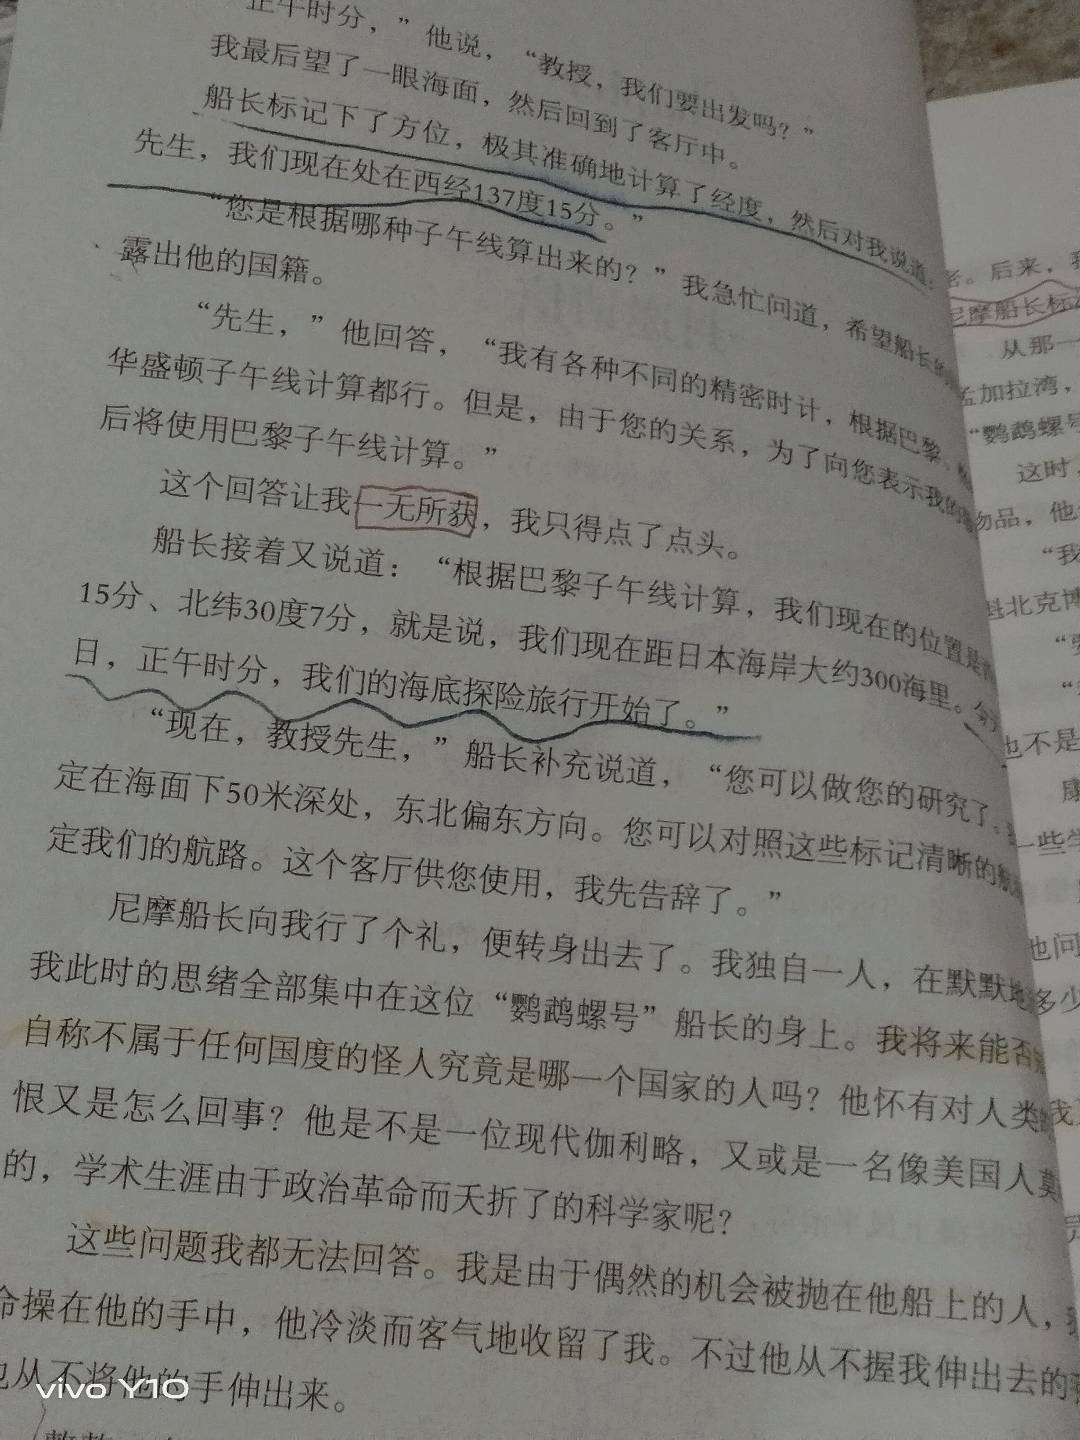 正午时分，”他说，“教授，我们要出发吗？”
我最后望了一眼海面，然后回到了客厅中。
船长标记下了方位，极其准确地计算了经度，然后对我说道：
先生，我们现在处在西经137度15分。”
“您是根据哪种子午线算出来的？”我急忙问道，希望船长的
露出他的国籍。
“先生，”他回答，“我有各种不同的精密时计，根据巴黎、
华盛顿子午线计算都行。但是，由于您的关系，为了向您表示我的
后将使用巴黎子午线计算。”
这个回答让我一无所获，我只得点了点头。
船长接着又说道：“根据巴黎子午线计算，我们现在的位置是
15分、北纬30度7分，就是说，我们现在距日本海岸大约300海里。今天
日，正午时分，我们的海底探险旅行开始了。”
“现在，教授先生，”船长补充说道，“您可以做您的研究了。
定在海面下50米深处，东北偏东方向。您可以对照这些标记清晰的航
定我们的航路。这个客厅供您使用，我先告辞了。”
尼摩船长向我行了个礼，便转身出去了。我独自一人，在默默地
我此时的思绪全部集中在这位“鹦鹉螺号”船长的身上。我将来能否
自称不属于任何国度的怪人究竟是哪一个国家的人吗？他怀有对人类
恨又是怎么回事？他是不是一位现代伽利略，又或是一名像美国人莫
的，学术生涯由于政治革命而夭折了的科学家呢？
这些问题我都无法回答。我是由于偶然的机会被抛在他船上的人，
命操在他的手中，他冷淡而客气地收留了我。不过他从不握我伸出去的
从不将他的手伸出来。
。后来，
尼摩船长标
从那一
孟加拉湾，
“鹦鹉螺号
这时
物品，他
“我
魁北克博
也不是
康
一些学
他问
多少
我
vivo Y10